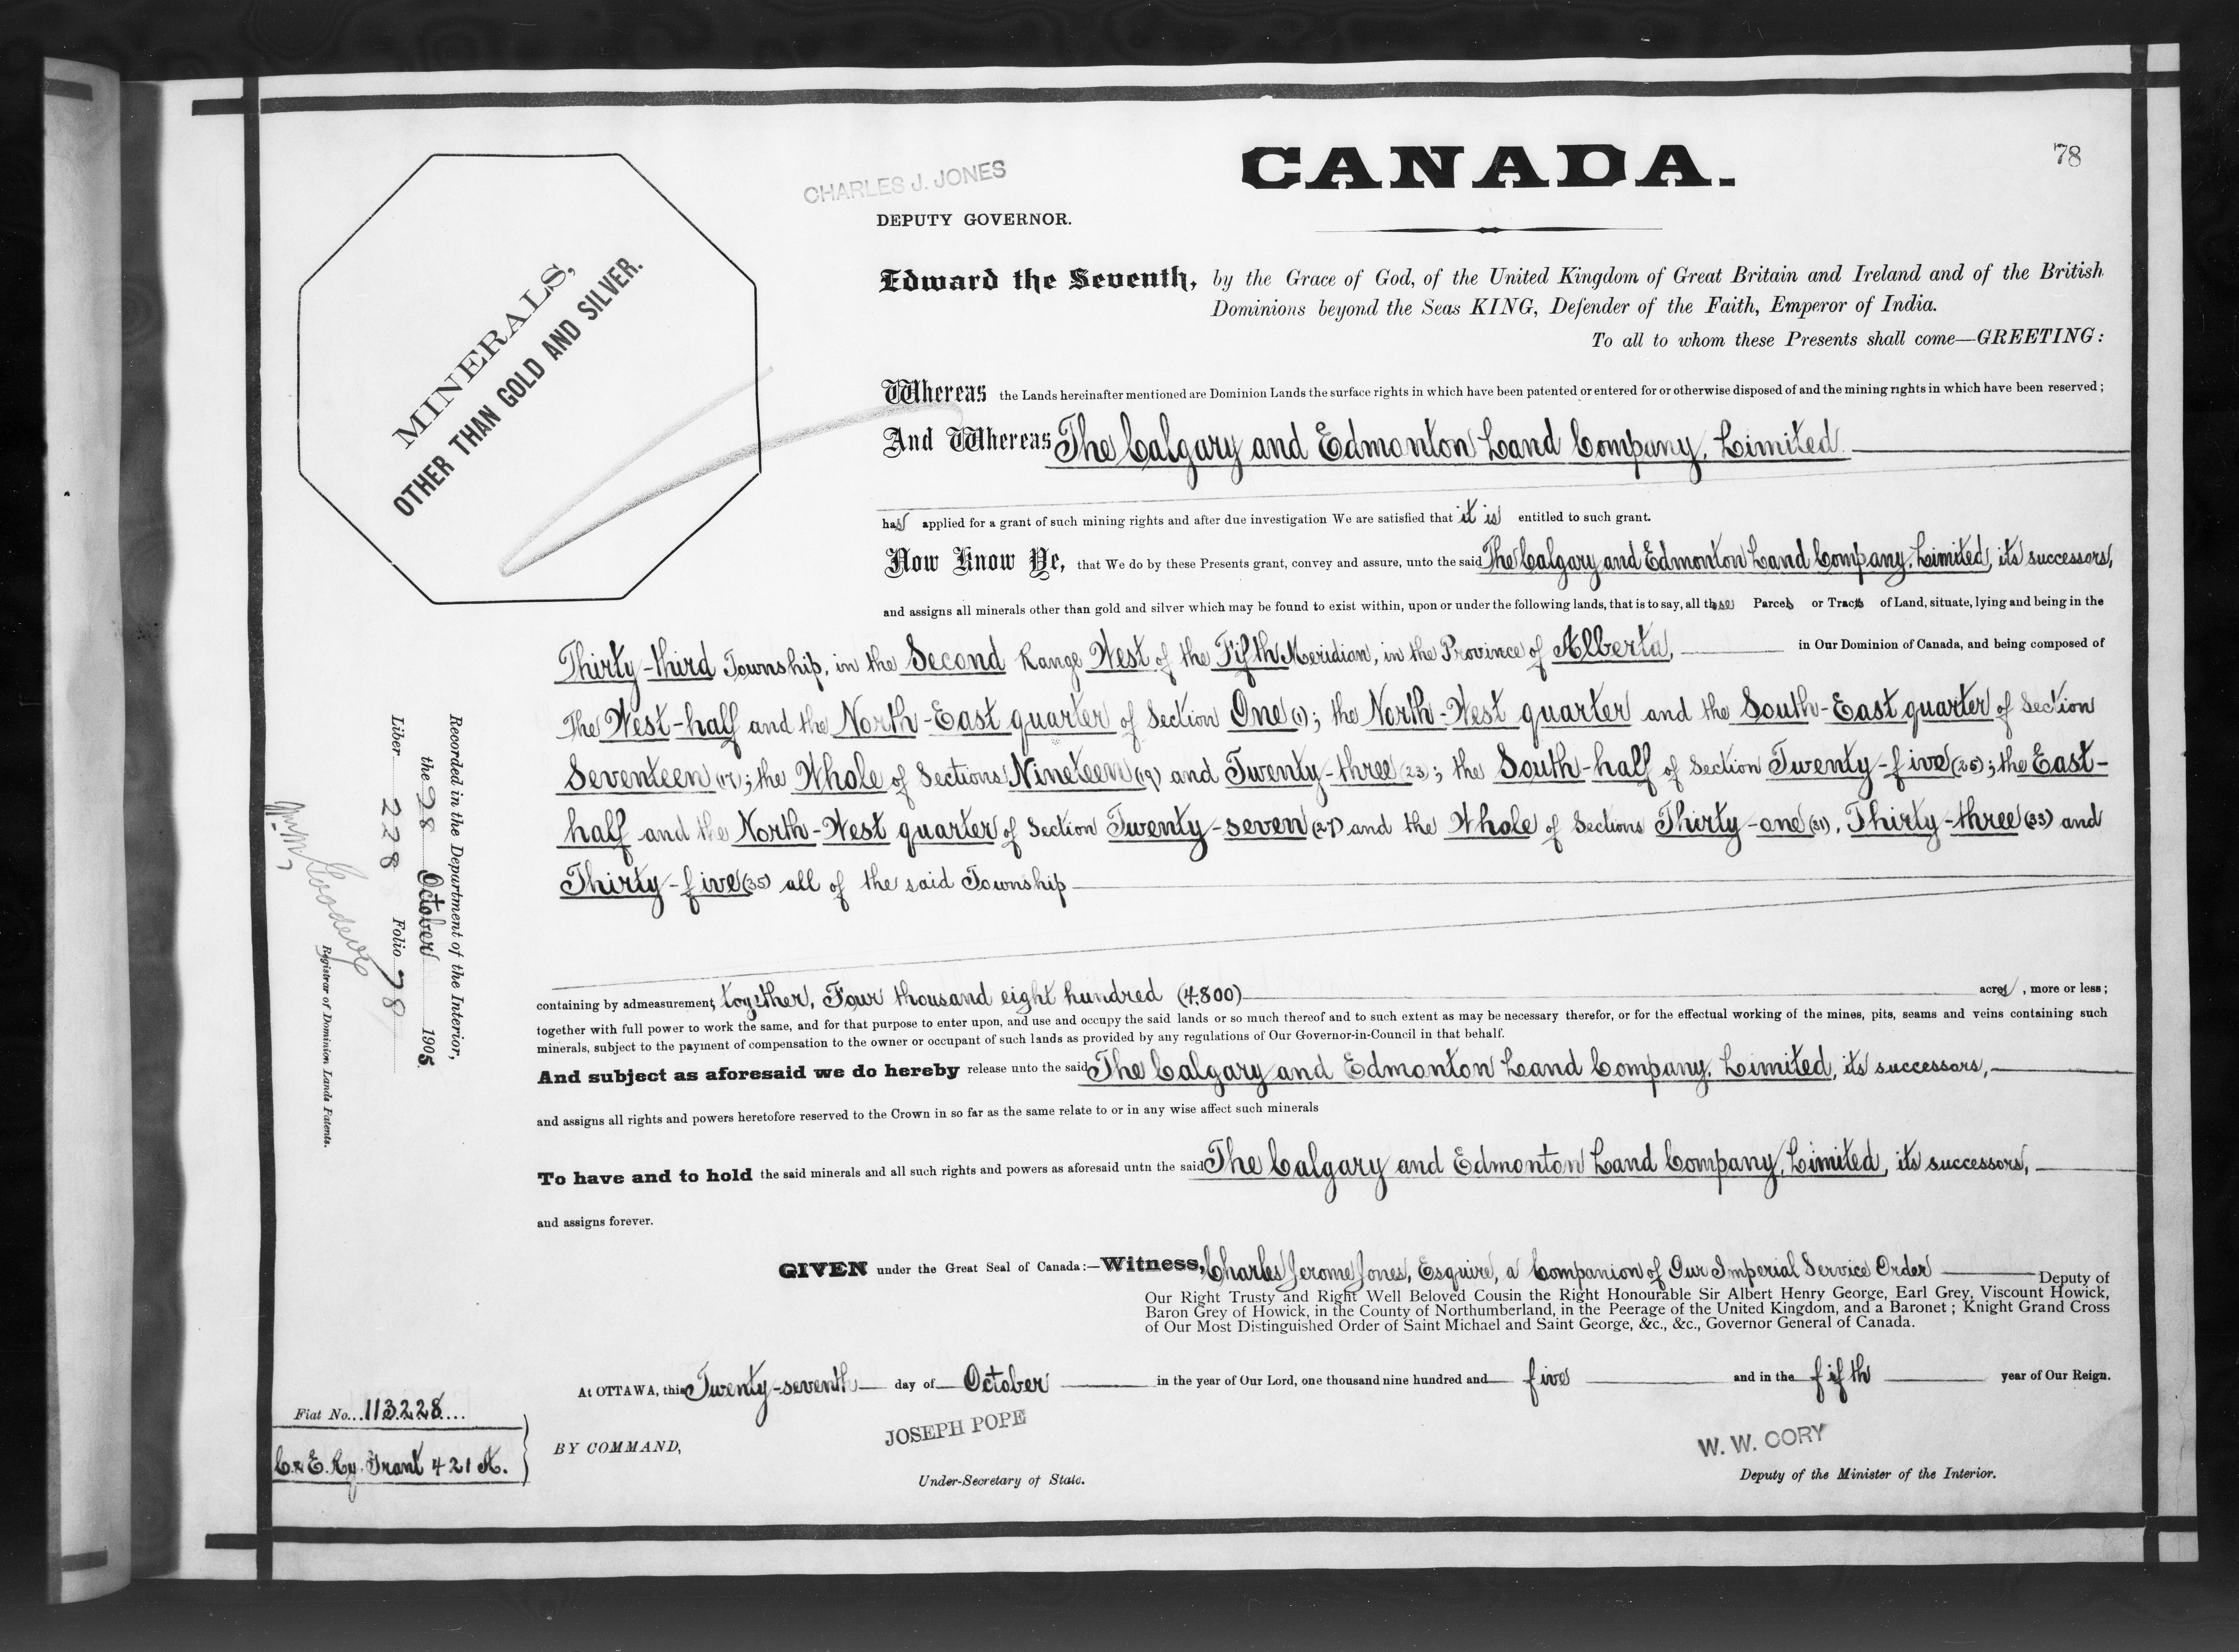 78
CANADA.
CHARLES J. JONES
DEPUTY GOVERNOR.
MINERALS,
OTHER THAN GOLD AND SILVER.
Edward the Seventh, by the Grace of God, of the United Kingdom of Great Britain and Ireland and of the British
Dominions beyond the Seas KING, Defender of the Faith, Emperor of India.
To all to whom these Presents shall come—GREETING:
Whereas the Lands hereinafter mentioned are Dominion Lands the surface rights in which have been patented or entered for or otherwise disposed of and the mining rights in which have been reserved;
And Whereas The Calgary and Edmonton Land Company, Limited
has applied for a grant of such mining rights and after due investigation We are satisfied that it is entitled to such grant.
Now Know Ye, that We do by these Presents grant, convey and assure, unto the said The Calgary and Edmonton Land Company, Limited, its successors,
and assigns all minerals other than gold and silver which may be found to exist within, upon or under the following lands, that is to say, all those Parcels or Tracts of Land, situate, lying and being in the
Thirty-third Township, in the Second Range West of the Fifth Meridian, in the Province of Alberta, in Our Dominion of Canada, and being composed of
The West-half and the North-East quarter of Section One (1); the North-West quarter and the South-East quarter of Section
Seventeen (17); the Whole of Sections Nineteen (19) and Twenty-three (23); the South-half of Section Twenty-five (25); the East-
half and the North-West quarter of Section Twenty-seven (27) and the Whole of Sections Thirty-one (31), Thirty-three (33) and
Thirty-five (35) all of the said Township
containing by admeasurement, together, Four thousand eight hundred (4.800) acres, more or less;
together with full power to work the same, and for that purpose to enter upon, and use and occupy the said lands or so much thereof and to such extent as may be necessary therefor, or for the effectual working of the mines, pits, seams and veins containing such
minerals, subject to the payment of compensation to the owner or occupant of such lands as provided by any regulations of Our Governor-in-Council in that behalf.
And subject as aforesaid we do hereby release unto the said The Calgary and Edmonton Land Company, Limited, its successors,
and assigns all rights and powers heretofore reserved to the Crown in so far as the same relate to or in any wise affect such minerals
To have and to hold the said minerals and all such rights and powers as aforesaid untn the said The Calgary and Edmonton Land Company, Limited, its successors,
and assigns forever.
GIVEN under the Great Seal of Canada:—Witness, Charles Jerome Jones, Esquire, a Companion of Our Imperial Service Order Deputy of
Our Right Trusty and Right Well Beloved Cousin the Right Honourable Sir Albert Henry George, Earl Grey, Viscount Howick,
Baron Grey of Howick, in the County of Northumberland, in the Peerage of the United Kingdom, and a Baronet; Knight Grand Cross
of Our Most Distinguished Order of Saint Michael and Saint George, &c., &c., Governor General of Canada.
At OTTAWA, this Twenty-seventh day of October in the year of Our Lord, one thousand nine hundred and five and in the fifth year of Our Reign.
BY COMMAND,
JOSEPH POPE
Under-Secretary of State.
W. W. CORY
Deputy of the Minister of the Interior.
Recorded in the Department of the Interior,
the 28 October 1905
Liber 228 Folio 78
Registrar of Dominion Lands Patents.
Fiat No. 113228
C. & E. Ry. Grant 421 A.